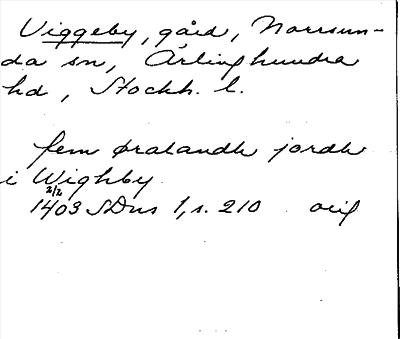 Viggeby, gård, Norrsun-
da sn, Ärlinghundra
hd, Stockh. l.
fem øralandh jordh
i Wighby
2/2
1403 SDns 1, s. 210 orig